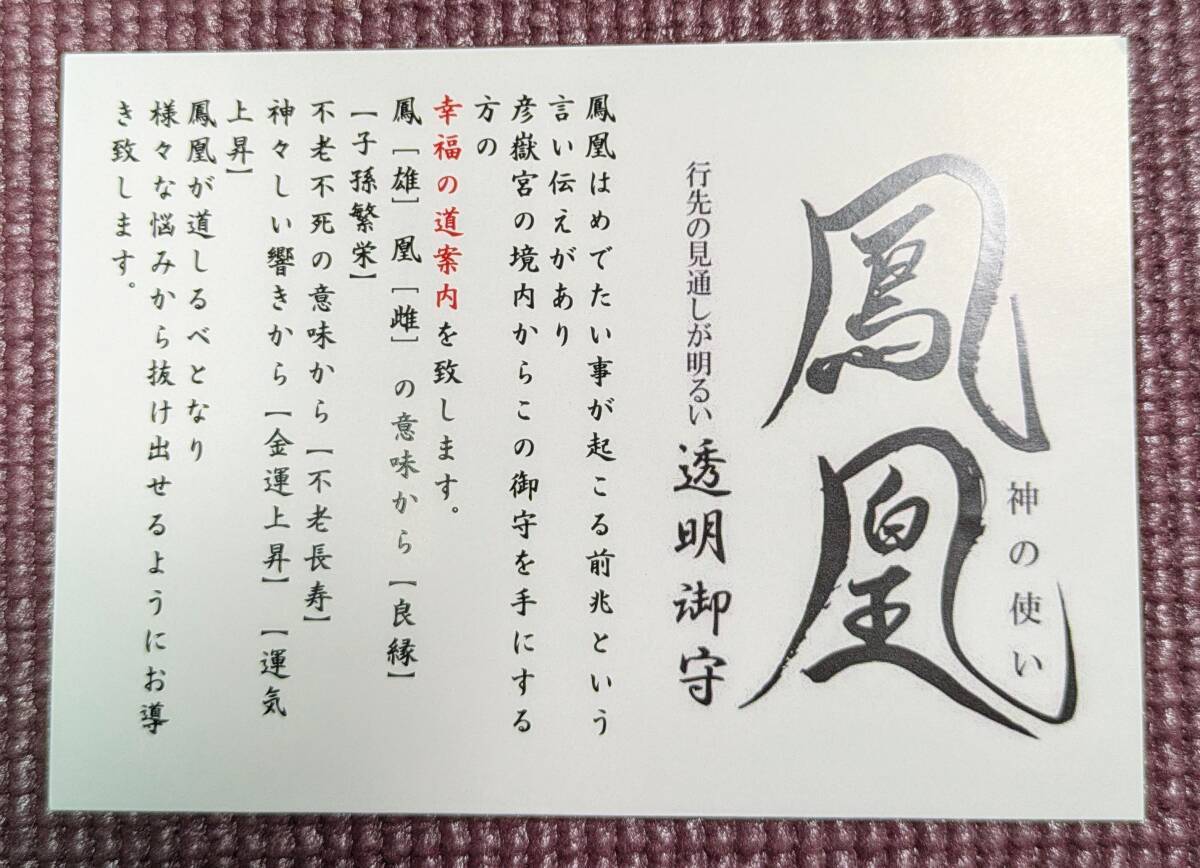 神の使い
鳳凰
行先の見通しが明るい 透明御守
鳳凰はめでたい事が起こる前兆という
言い伝えがあり
彦嶽宮の境内からこの御守を手にする
方の
幸福の道案内を致します。
鳳[雄] 凰[雌] の意味から【良縁】
【子孫繁栄】
不老不死の意味から【不老長寿】
神々しい響きから【金運上昇】【運気
上昇】
鳳凰が道しるべとなり
様々な悩みから抜け出せるようにお導
き致します。